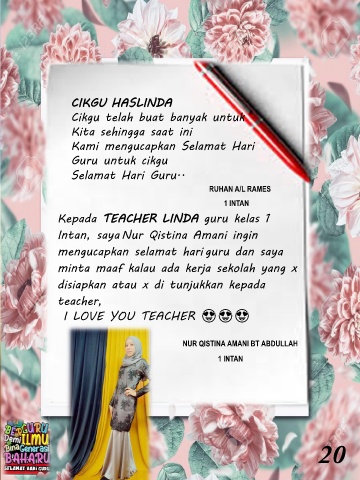 CIKGU HASLINDA
Cikgu telah buat banyak untuk
Kita sehingga saat ini
Kami mengucapkan Selamat Hari
Guru untuk cikgu
Selamat Hari Guru..
RUHAN A/L RAMES
1 INTAN
Kepada TEACHER LINDA guru kelas 1
Intan, saya Nur Qistina Amani ingin
mengucapkan selamat hari guru dan saya
minta maaf kalau ada kerja sekolah yang x
disiapkan atau x di tunjukkan kepada
teacher,
I LOVE YOU TEACHER 😍😍😍
NUR QISTINA AMANI BT ABDULLAH
1 INTAN
BERGURU
Demi ILMU
Bina Generasi
BAHARU
SELAMAT HARI GURU
20